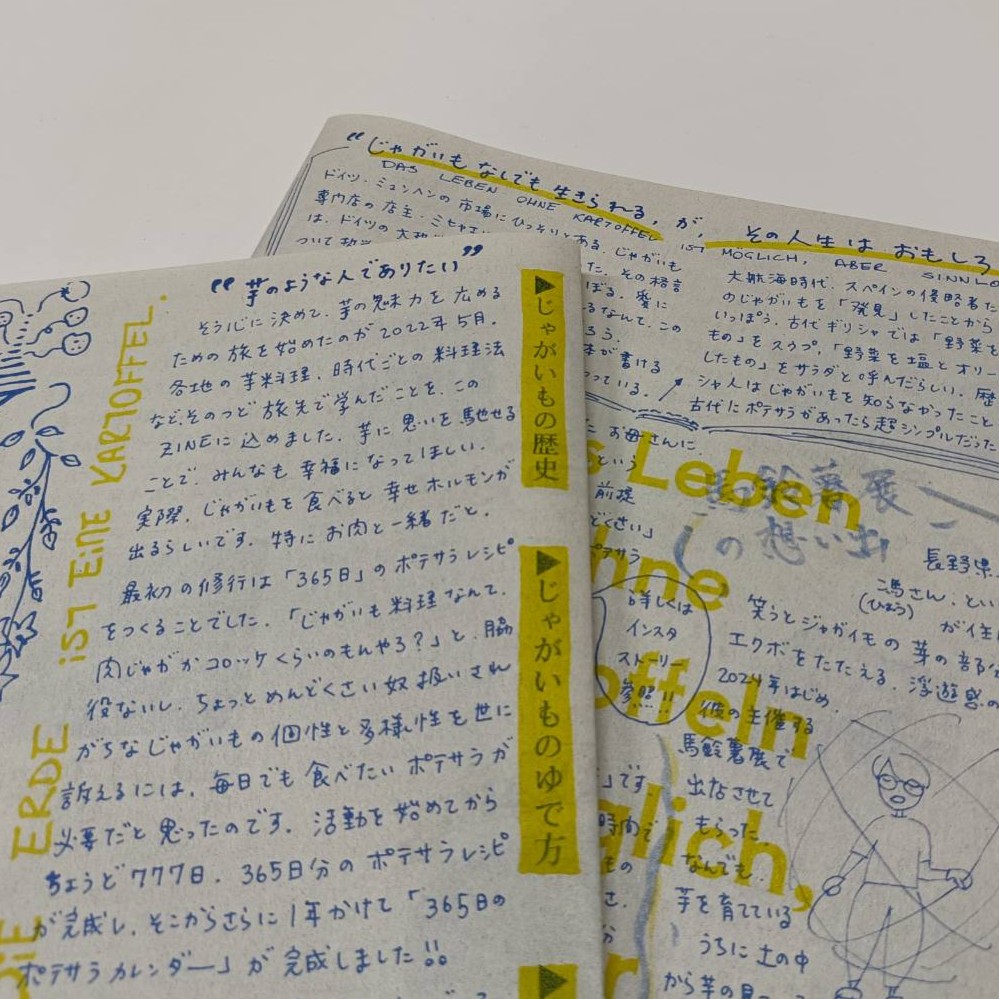 “芋のような人でありたい”
そう心に決めて、芋の魅力を広める
ための旅を始めたのが2022年5月。
各地の芋料理、時代ごとの料理法
など、そのつど旅先で学んだことを、この
ZINEに込めました。芋に思いを馳せる
ことで、みんなも幸福になってほしい。
実際、じゃがいもを食べると幸せホルモンが
出るらしいです。特にお肉と一緒だと。
最初の修行は「365日」のポテサラレシピ
をつくることでした。「じゃがいも料理なんて、
肉じゃがかコロッケくらいのもんやろ?」と、脇
役ないし、ちょっとめんどくさい奴扱いされ
がちなじゃがいもの個性と多様性を世に
訴えるには、毎日でも食べたいポテサラが
必要だと思ったのです。活動を始めてから
ちょうど777日、365日分のポテサラレシピ
が完成し、そこからさらに1年かけて「365日の
ポテサラカレンダー」が完成しました!!
▶じゃがいもの歴史
▶じゃがいものゆで方
▶
DIE ERDE IST EINE KARTOFFEL.
“じゃがいもなしでも生きられる、が、その人生はおもしろ
DAS LEBEN OHNE KARTOFFELN IST MÖGLICH, ABER SINNLO
ドイツ・ミュンヘンの市場にひっそりとある、じゃがいも
専門店の店主・ミセス
は、ドイツの
ついて
た。その格言
ぼる。愛に
るなんて、この
ろう
本が書ける
っている。
大航海時代、スペインの侵略者た
のじゃがいもを「発見」したことから
いっぽう、古代ギリシャでは「野菜を
もの」をスープ、「野菜を塩とオリー
したもの」をサラダと呼んだらしい。歴
シャ人はじゃがいもを知らなかったこと
古代にポテサラがあったら超シンプルだった
お母さんに、
という
前提
どくさい」
ポテサラ
詳しくは
インスタ
ストーリー
参照!!
です。
時間で
もの
さ、
か
s Leben
hne
offeln
glich,
r
馬鈴薯展
の想い出
長野県
馮さん、とい
(ひょう)
が住
笑うとジャガイモの芽の部分
エクボをたたえる、浮遊感の
2024年はじめ、
彼の主催する
馬鈴薯展で
出店させて
もらった。
なんでも、
芋を育てている
うちに土の中
から芋の見